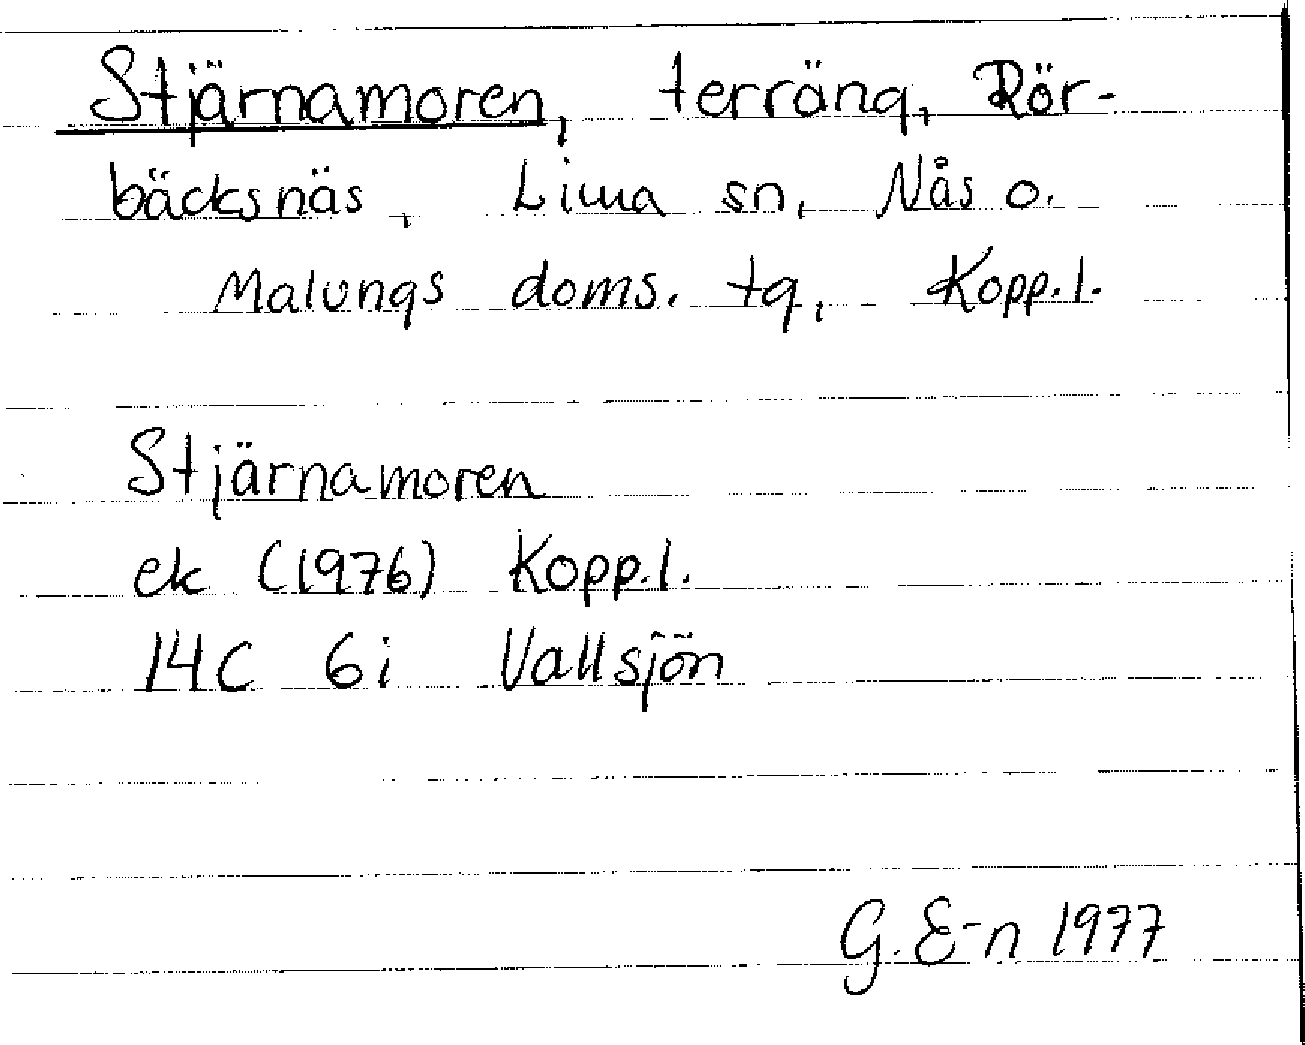 Stjärnamoren, terräng, Rör-
bäcksnäs, Lima sn, Nås o.
Malungs doms. tg, Kopp.l.
Stjärnamoren
ek (1976) Kopp.l.
14C 6i Vallsjön
G. E-n 1977